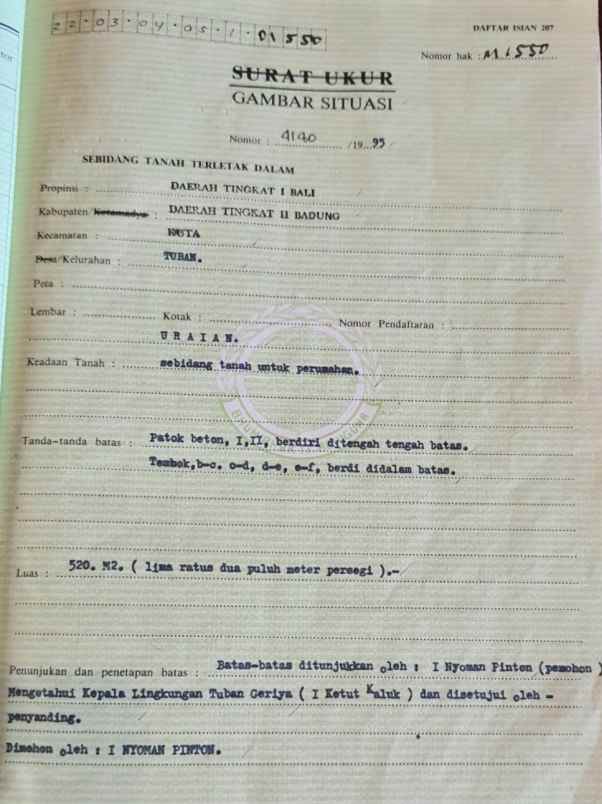 22·03·04·05·1·01550
DAFTAR ISIAN 207
Nomor hak : M/550
SURAT UKUR
GAMBAR SITUASI
Nomor : 4140 /19 95
SEBIDANG TANAH TERLETAK DALAM
Propinsi : DAERAH TINGKAT I BALI
Kabupaten/Kotamadya : DAERAH TINGKAT II BADUNG
Kecamatan : KUTA
Desa/Kelurahan : TUBAN.
Peta :
Lembar : Kotak : Nomor Pendaftaran :
URAIAN.
Keadaan Tanah : sebidang tanah untuk perumahan.
Tanda-tanda batas : Patok beton, I,II, berdiri ditengah tengah batas.
Tembok,b-c. c-d, d-e, e-f, berdi didalam batas.
Luas : 520. M2. ( lima ratus dua puluh meter persegi ).-
Penunjukan dan penetapan batas : Batas-batas ditunjukkan oleh : I Nyoman Pinton (pemohon )
Mengetahui Kepala Lingkungan Tuban Geriya ( I Ketut Kaluk ) dan disetujui oleh -
penyanding.
Dimohon oleh : I NYOMAN PINTON.